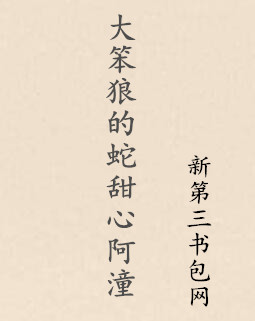 大笨狼的蛇甜心阿潼
新第三书包网